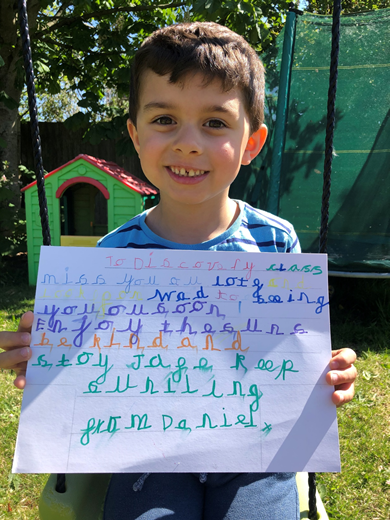 To Discovery class
miss you lots
to seeing
you soon!
Enjoy the suns
be kind and
stay safe keep
smiling
from Daniel x